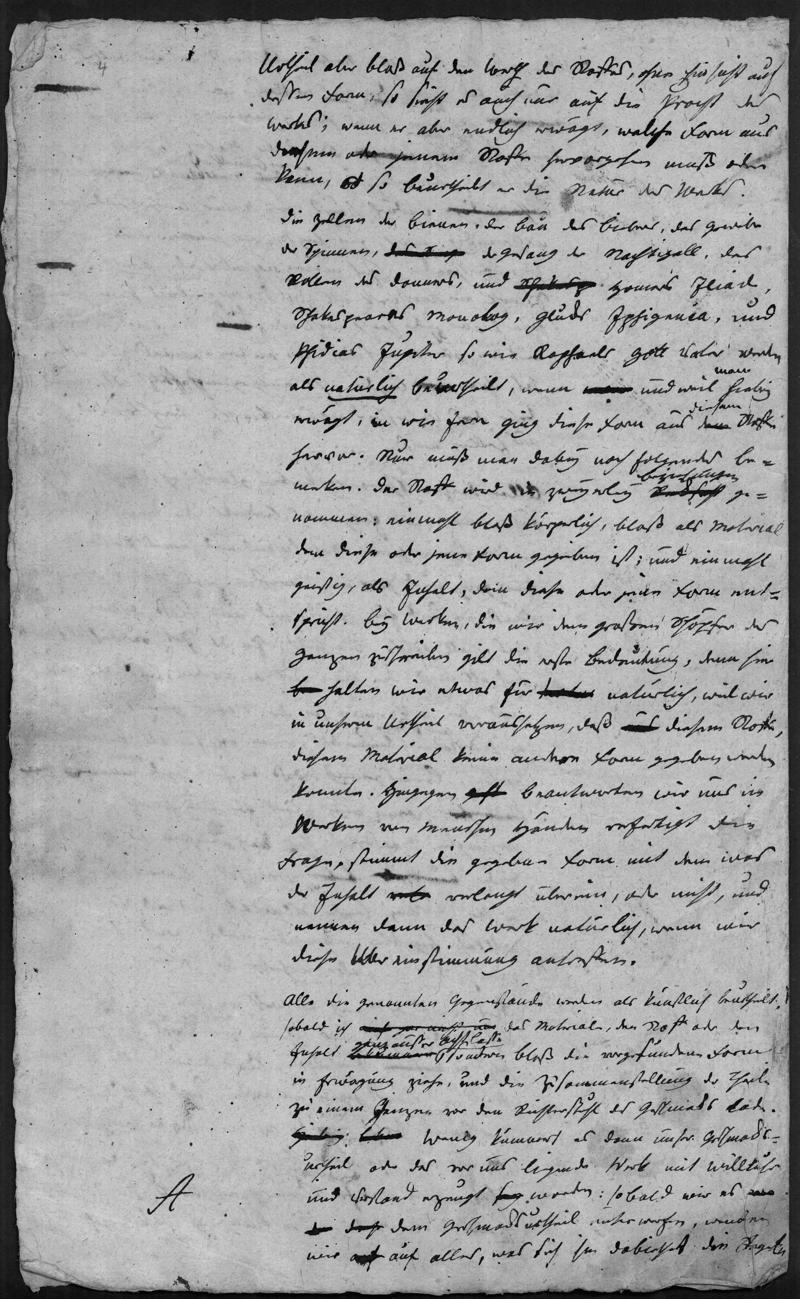 4
Urtheil aber bloß auf den Werth des Stoffes, ohne Hinsicht auf
dessen Form, so sieht es auch nur auf die Pracht des
Werks; wenn er aber endlich erwägt, welche Form aus
diesem oder jenem Stoffe hervorgehen muß oder
kann, so beurtheilt er die Natur des Werks.
Die Zellen der Bienen, der Bau des Biebers, das Gewebe
der Spinnen, der Gesang der Nachtigall, das
Rollen des Donners, und Homers Iliade,
Shakespeares Monolog, Glucks Iphigenia, und
Phidias Jupiter so wie Raphaels Gott Vater werden
als natürlich beurtheilt, wenn und weil man hiebey
erwägt, in wie fern ging diese Form aus diesem Stoffe
hervor. Nur muß man dabey noch folgendes be=
merken. Der Stoff wird in zweyerley Beziehungen ge=
nommen: einmahl bloß körperlich, bloß als Material
dem diese oder jene Form gegeben ist; und einmahl
geistig, als Inhalt, dem diese oder jene Form ent=
spricht. Bey Werken, die wir dem großen Schöpfer des
Ganzen zuschreiben gilt die erste Bedeutung, denn hier
halten wir etwas für natürlich, weil wir
in unserm Urtheil voraussetzen, daß diesem Stoffe,
diesem Material keine andere Form gegeben werden
konnte. Hingegen beantworten wir uns in
Werken von Menschen Händen verfertigt die
Frage, stimmt die gegebene Form mit dem was
der Inhalt verlangt überein, oder nicht, und
nennen dann das Werk natürlich, wenn wir
diese Übereinstimmung antreffen.
Alle die genannten Gegenstände werden als künstlich beurtheilt,
sobald ich das Material, den Stoff oder den
Inhalt ganz außer Acht lasse sondern bloß die vorgefundene Form
in Erwägung ziehe, und die Zusammenstellung der Theile
zu einem Ganzen vor den Richterstuhl des Geschmacks lade.
Wenig kümmert es dann unser Geschmacks=
urtheil ob das vor uns liegende Werk mit Willkühr
und Verstand erzeugt worden: sobald wir es
dem Geschmacksurtheil unterwerfen, wenden
wir auf alles, was sich ihm dabiethet die
A